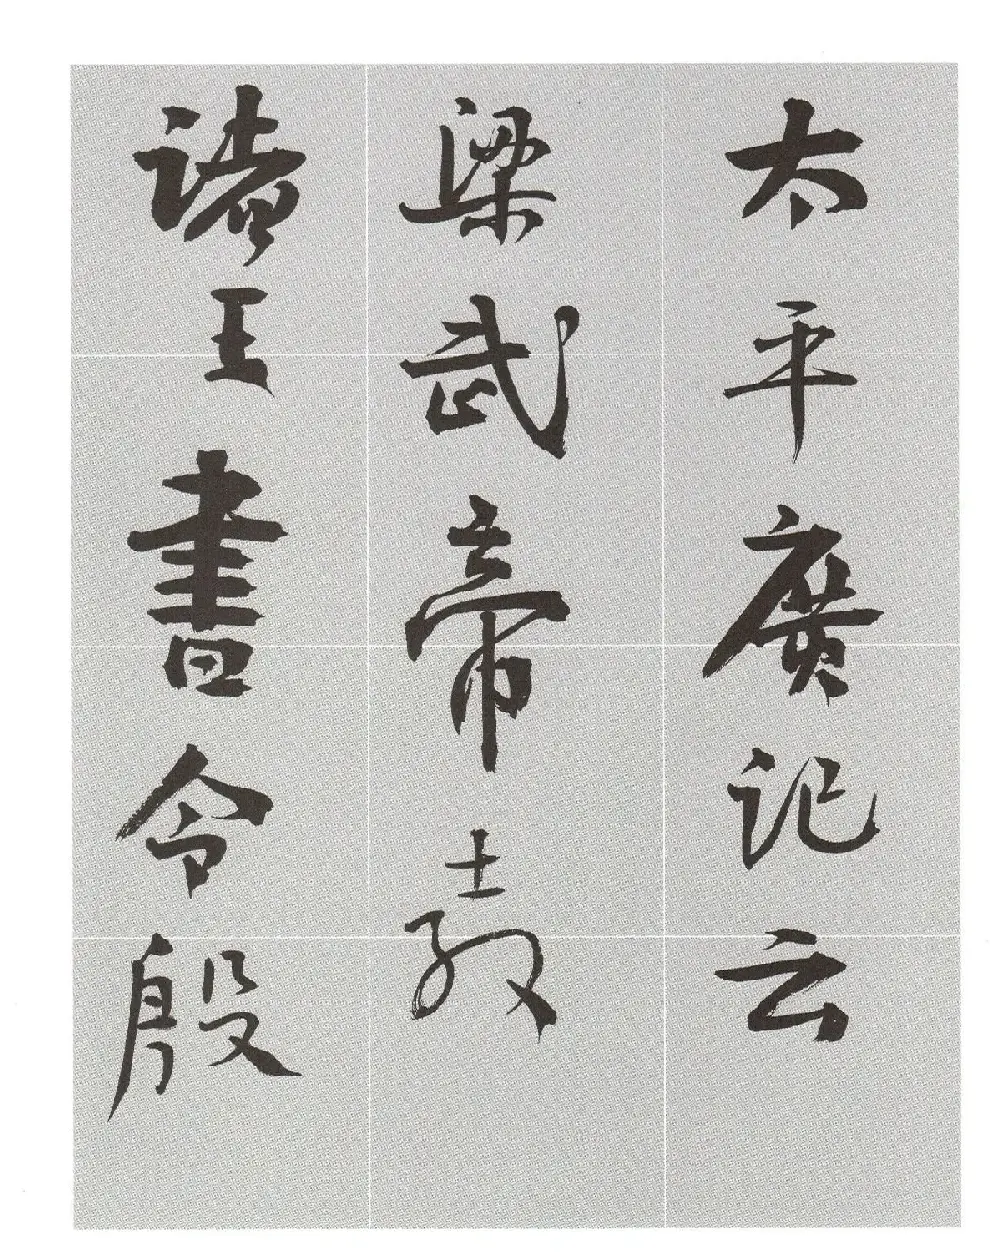 太平廣記云
梁武帝教
諸王書令殷